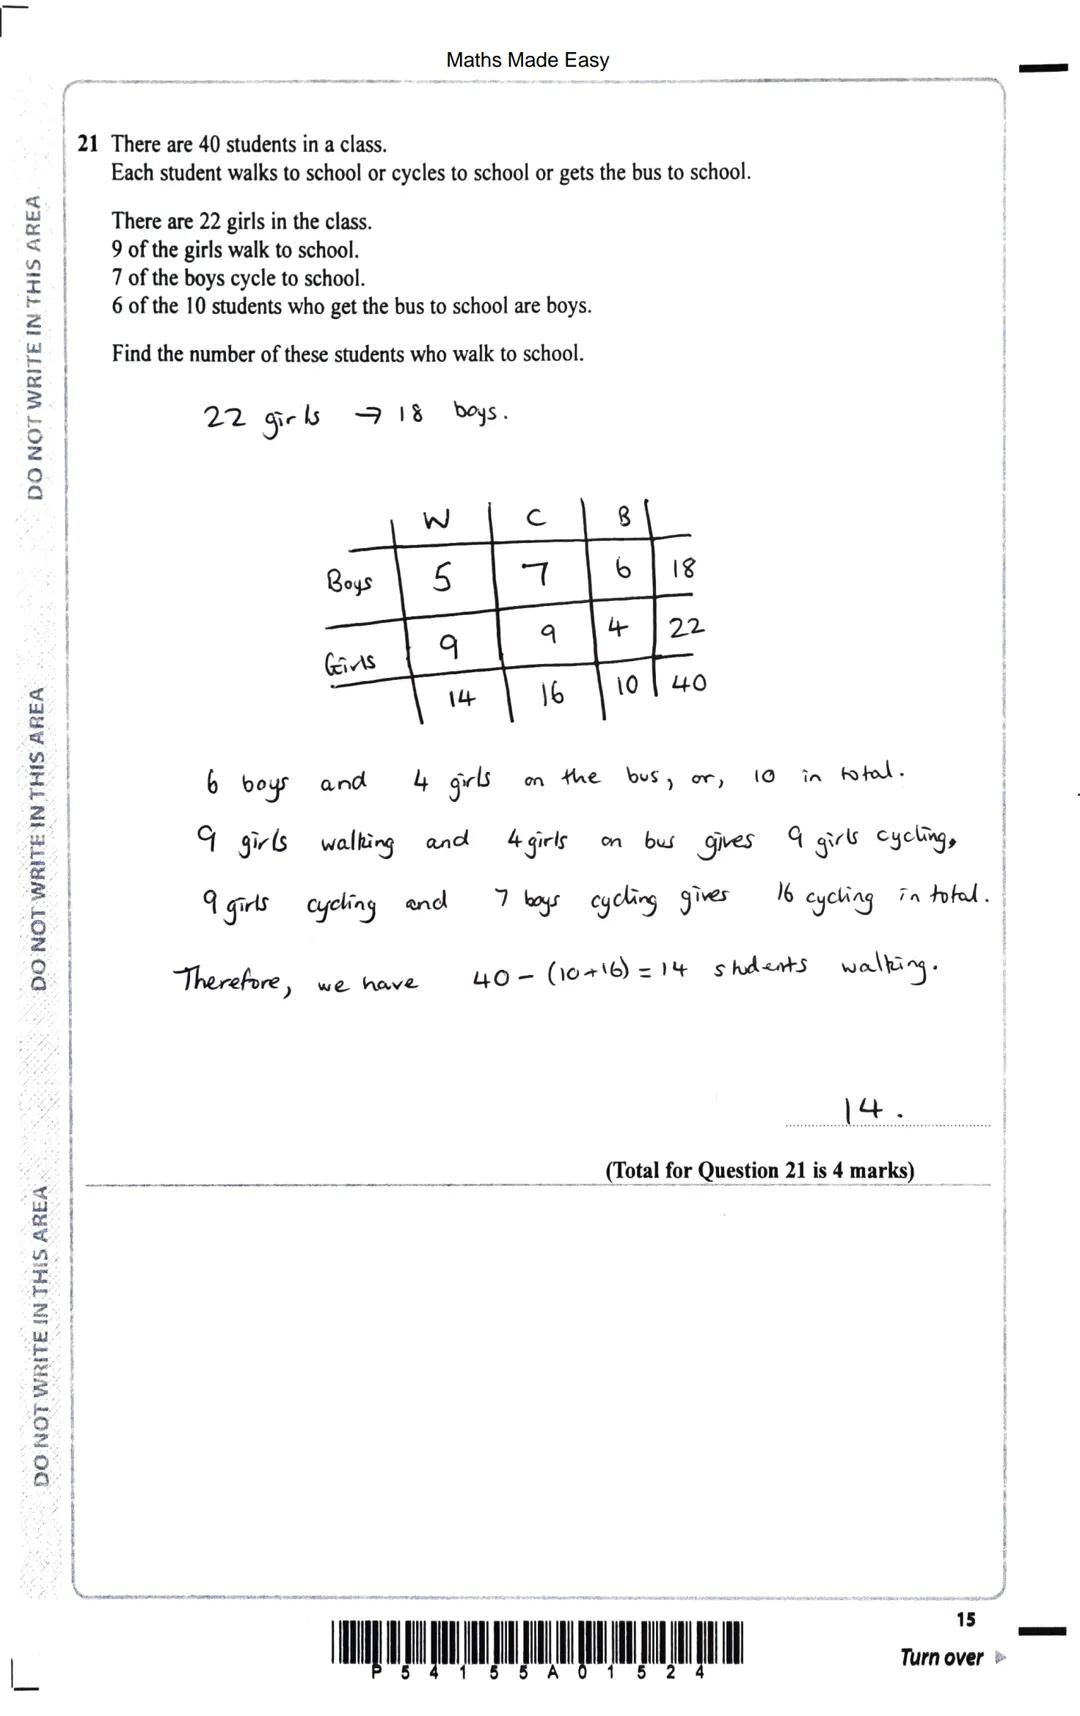 Maths Made Easy
21 There are 40 students in a class.
Each student walks to school or cycles to school or gets the bus to school.
There are 22 girls in the class.
9 of the girls walk to school.
7 of the boys cycle to school.
6 of the 10 students who get the bus to school are boys.
Find the number of these students who walk to school.
22 girls → 18 boys.
W C B
Boys 5 7 6 18
Girls 9 9 4 22
14 16 10 40
6 boys and 4 girls on the bus, or, 10 in total.
9 girls walking and 4 girls on bus gives 9 girls cycling,
9 girls cycling and 7 boys cycling gives 16 cycling in total.
Therefore, we have 40 - (10+16) = 14 students walking.
14.
(Total for Question 21 is 4 marks)
DO NOT WRITE IN THIS AREA
DO NOT WRITE IN THIS AREA
DO NOT WRITE IN THIS AREA
15
P 5 4 1 5 5 A 0 1 5 2 4
Turn over